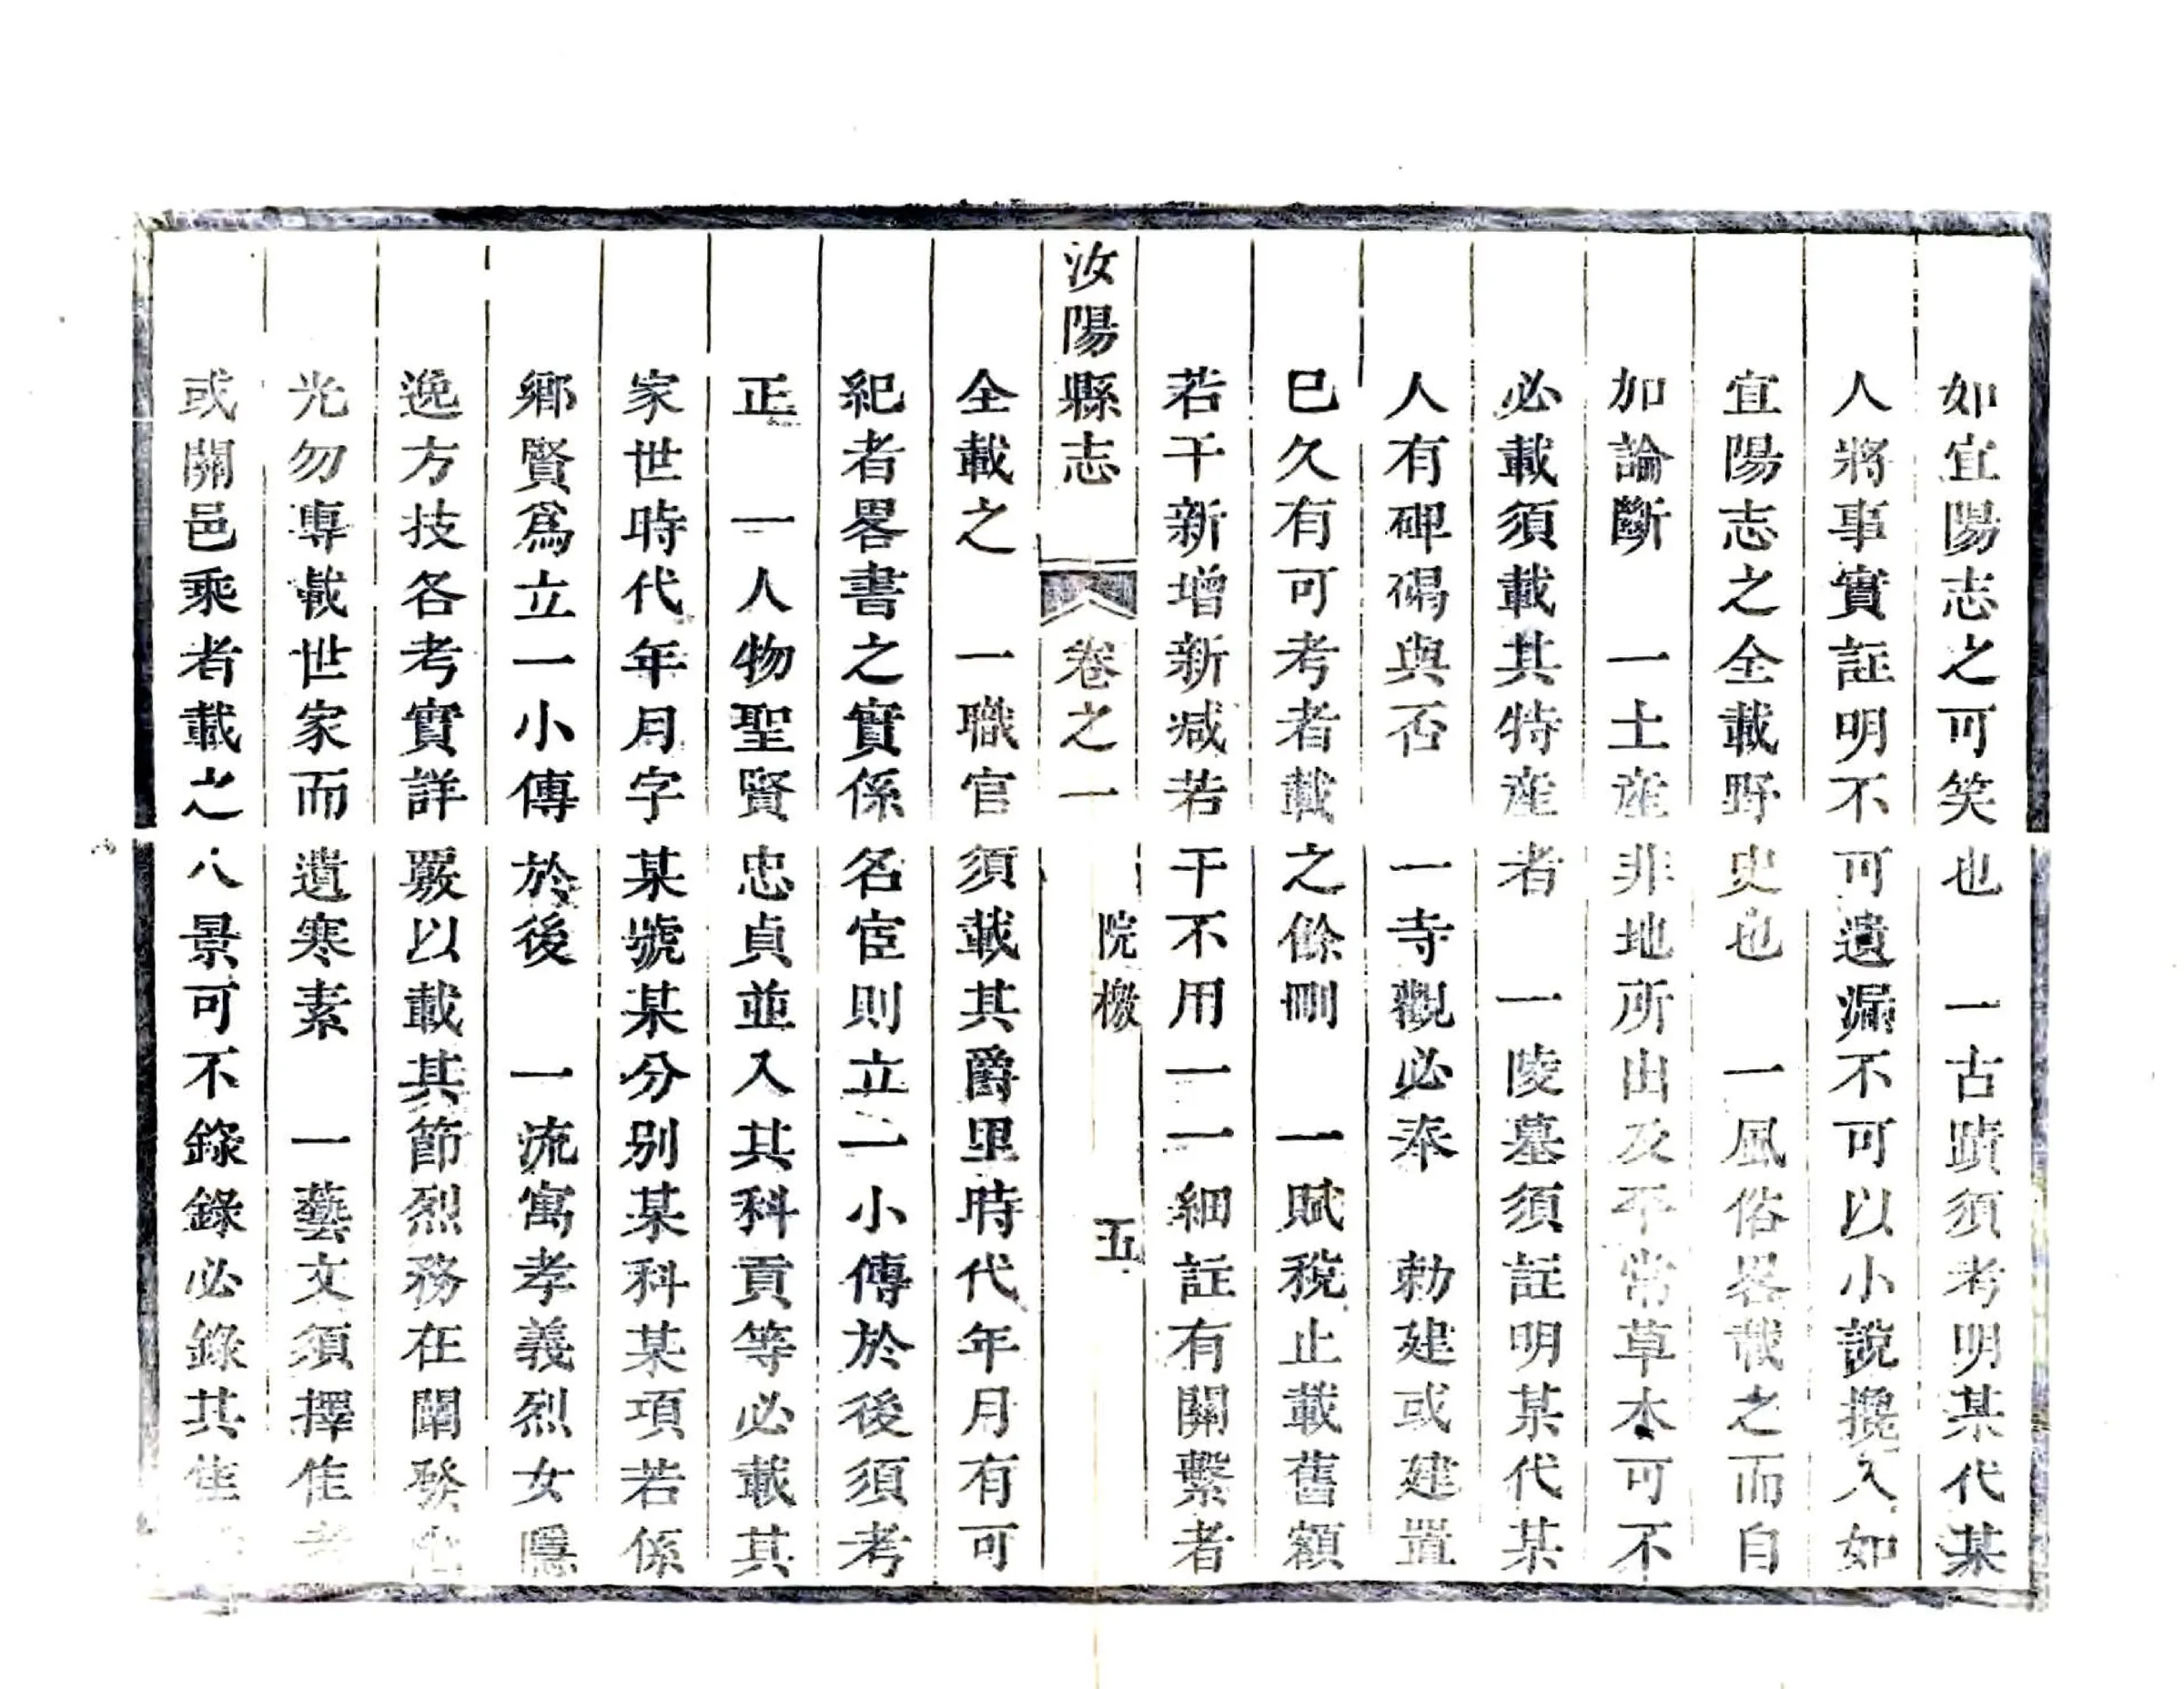 如宜陽志之可笑也　一古蹟須考明某代某
人將事實註明不可遺漏不可以小說攙入如
宜陽志之全載野史也　一風俗畧載之而自
加論斷　一土産非地所出及平常草木可不
必載須載其特産者　一陵墓須註明某代某
人有碑碣與否　一寺觀必奉　勅建或建置
巳久有可考者載之餘刪　一賦稅止載舊額
若干新增新减若干不用一一細註有關繫者
汝陽縣志　卷之一　院檄　五
全載之　一職官須載其爵里時代年月有可
紀者畧書之實係名宦則立一小傳於後須考
正　一人物聖賢忠貞並入其科貢等必載其
家世時代年月字某號某分別某科某項若係
鄉賢爲立一小傳於後　一流寓孝義烈女隱
逸方技各考實詳覈以載其節烈務在闡發
光勿專載世家而遺寒素　一藝文須擇佳者
或關邑乘者載之八景可不錄錄必錄其佳